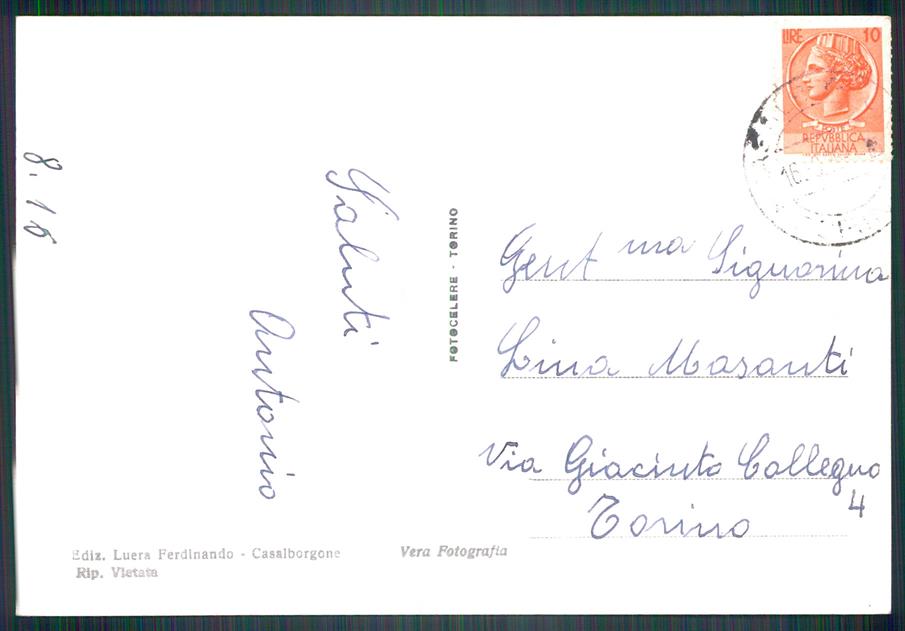 8. 16
Saluti
Antonio
FOTOCELERE - TORINO
LIRE 10
POSTE
REPVBBLICA
ITALIANA
16.
Gent ma Signorina
Lina Masanti
Via Giacinto Collegno
4
Torino
Ediz. Luera Ferdinando - Casalborgone
Rip. Vietata
Vera Fotografia